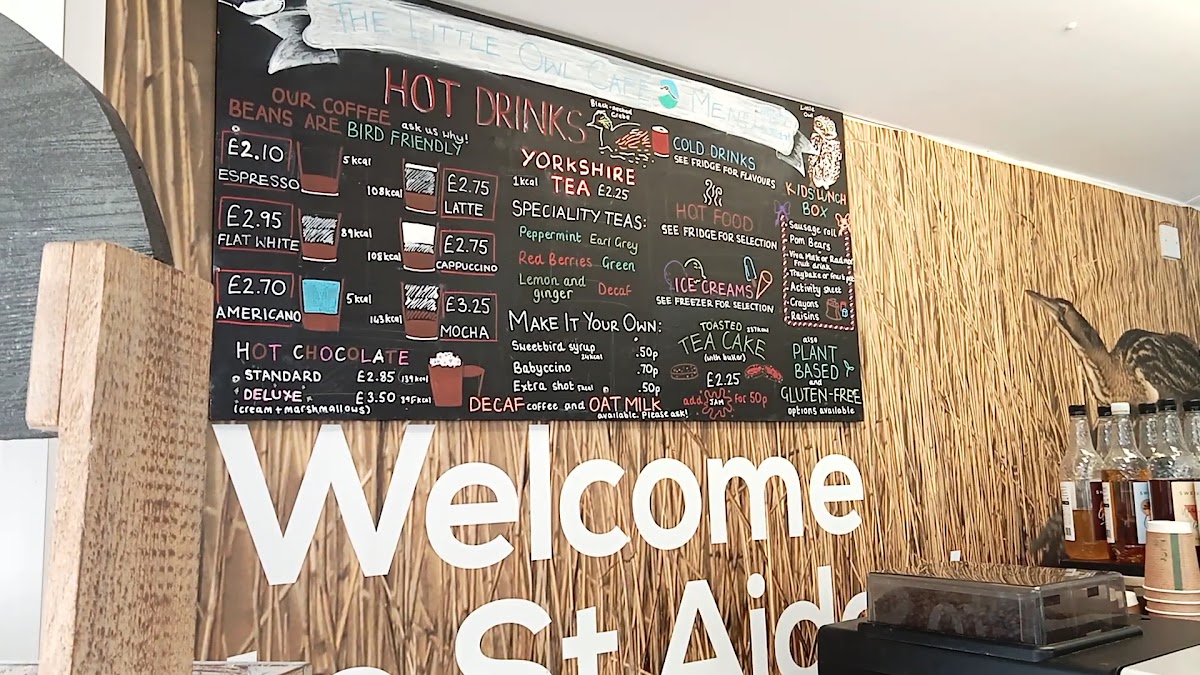 THE LITTLE OWL CAFE MENU
HOT DRINKS
OUR COFFEE
BEANS ARE BIRD FRIENDLY
ask us why!
£2.10
ESPRESSO
5kcal
108kcal
£2.75
LATTE
£2.95
FLAT WHITE
89kcal
108kcal
£2.75
CAPPUCCINO
£2.70
AMERICANO
5kcal
143kcal
£3.25
MOCHA
HOT CHOCOLATE
STANDARD £2.85 139kcal
DELUXE £3.50 395kcal
(cream + marshmallows)
Black-necked
Grebe
YORKSHIRE
TEA £2.25
1kcal
SPECIALITY TEAS:
Peppermint Earl Grey
Red Berries Green
Lemon and
ginger Decaf
MAKE IT YOUR OWN:
Sweetbird syrup .50p
24kcal
Babyccino .70p
Extra shot 5kcal .50p
DECAF coffee and OAT MILK
available. Please ask!
COLD DRINKS
SEE FRIDGE FOR FLAVOURS
HOT FOOD
SEE FRIDGE FOR SELECTION
ICE CREAMS
SEE FREEZER FOR SELECTION
TOASTED 237kcal
TEA CAKE
(with butter)
£2.25
add JAM for 50p
Little
Owl
KIDS LUNCH
BOX
Sausage roll
Pom Bears
Viva Milk or Radnor
Fruit drink
Activity sheet
Crayons
Raisins
also
PLANT
BASED
and
GLUTEN-FREE
options available
Welcome
to St Aida